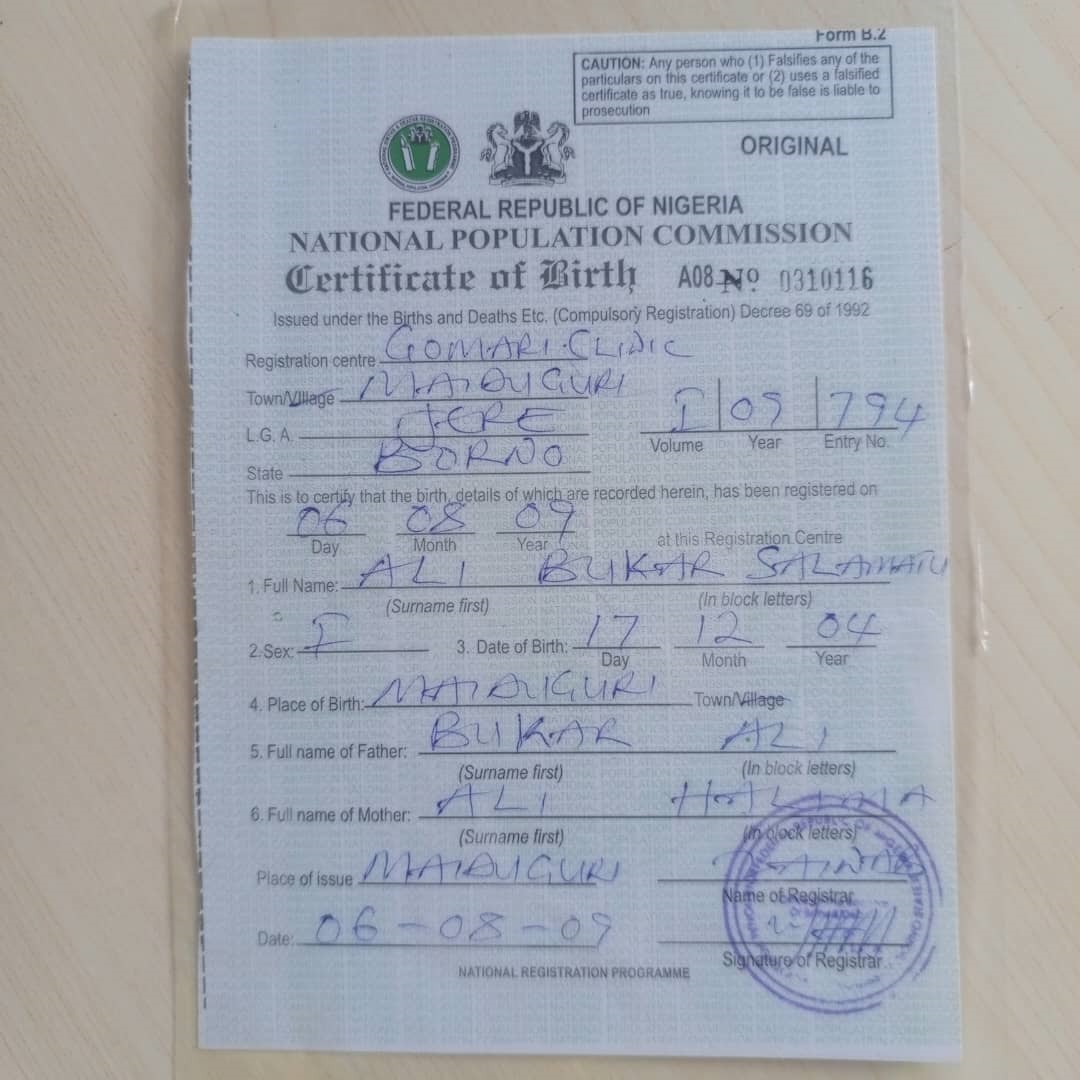 Form B.2
CAUTION: Any person who (1) Falsifies any of the
particulars on this certificate or (2) uses a falsified
certificate as true, knowing it to be false is liable to
prosecution
ORIGINAL
FEDERAL REPUBLIC OF NIGERIA
NATIONAL POPULATION COMMISSION
Certificate of Birth A08 No 0310116
Issued under the Births and Deaths Etc. (Compulsory Registration) Decree 69 of 1992
Registration centre GOMARI CLINIC
Town/Village MAIDUGURI
L.G.A. JERE
State BORNO
I 09 794
Volume Year Entry No.
This is to certify that the birth, details of which are recorded herein, has been registered on
06 08 09 at this Registration Centre
Day Month Year
1. Full Name: ALI BUKAR SALAMATU
(Surname first) (In block letters)
2. Sex: F 3. Date of Birth: 17 12 04
Day Month Year
4. Place of Birth: MAIDUGURI Town/Village
5. Full name of Father: BUKAR ALI
(Surname first) (In block letters)
6. Full name of Mother: ALI HALIMA
(Surname first) (In block letters)
Place of issue MAIDUGURI
Name of Registrar
Date: 06-08-09
Signature of Registrar
NATIONAL REGISTRATION PROGRAMME